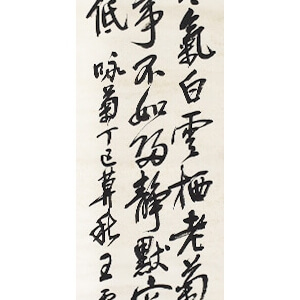 氣白雲栖老菊
事不如歸靜默
低 咏菊丁巳莫秋王